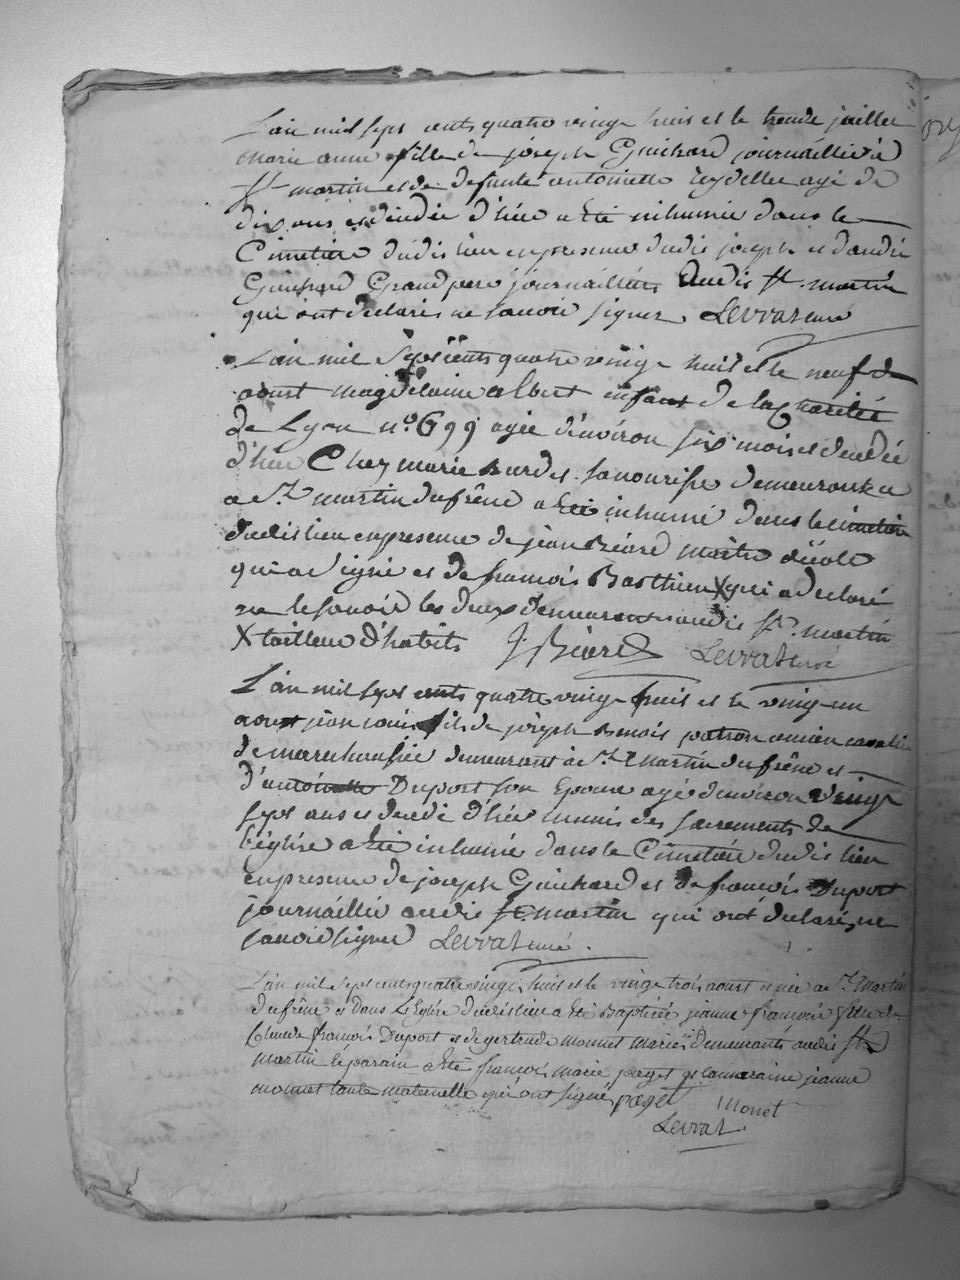 L'an mil sept cents quatre vingt huit et le trente juillet
marie anne fille de joseph Guichard journaillié à
St martin et de defunte antoinette agé de
dix ans et décédée d'hier a été inhumée dans le
Cimetière dudis lieu en presence dudis joseph et d'andré
Guichard Grand pere journailliés Audis St. martin
qui ont declarés ne savoir signer Levrat curé
L'an mil sept cents quatre vingt huit et le neuf de
aoust magdelaine albert enfant de la Charité
de Lyon n.o 699 agée d'environ six mois et decedée
d'hier Chez marie burdet sa nourisse demeurante
a St martin dufrêne a été inhumé dans le cimetière
dudis lieu en presence de jean Béard maitre d'école
qui a signé et de francois Barthieu X qui a declaré
ne le savoir les deux demeurants audis St. martin
X tailleur d'habits J. Béard Levrat curé
L'an mil sept cents quatre vingt huit et le vingt un
aoust jean louis fils de joseph benoit patron ancien cavalier
de marechaussée demeurant à St martin du frêne et
d'antoinette Duport son Epouse agé d'environ vingt
sept ans et decedé d'hier munis des sacrements de
l'église a été inhumé dans le Cimetière dudis lieu
en presence de joseph Guichard et de francois Duport
journaillié audis St. martin qui ont declaré ne
savoir signer Levrat curé.
L'an mil sept cents quatre vingt huit et le vingt trois aoust est née a St. Martin
dufrêne et dans L'Eglise dudis lieu a été Baptisée jeanne francoise fille de
Claude francois Duport et de gertrude monnet mariés demeurants audis St
martin le parain a été francois marie paget et la maraine jeanne
monnet tante maternelle qui ont signé paget Monet
Levrat.